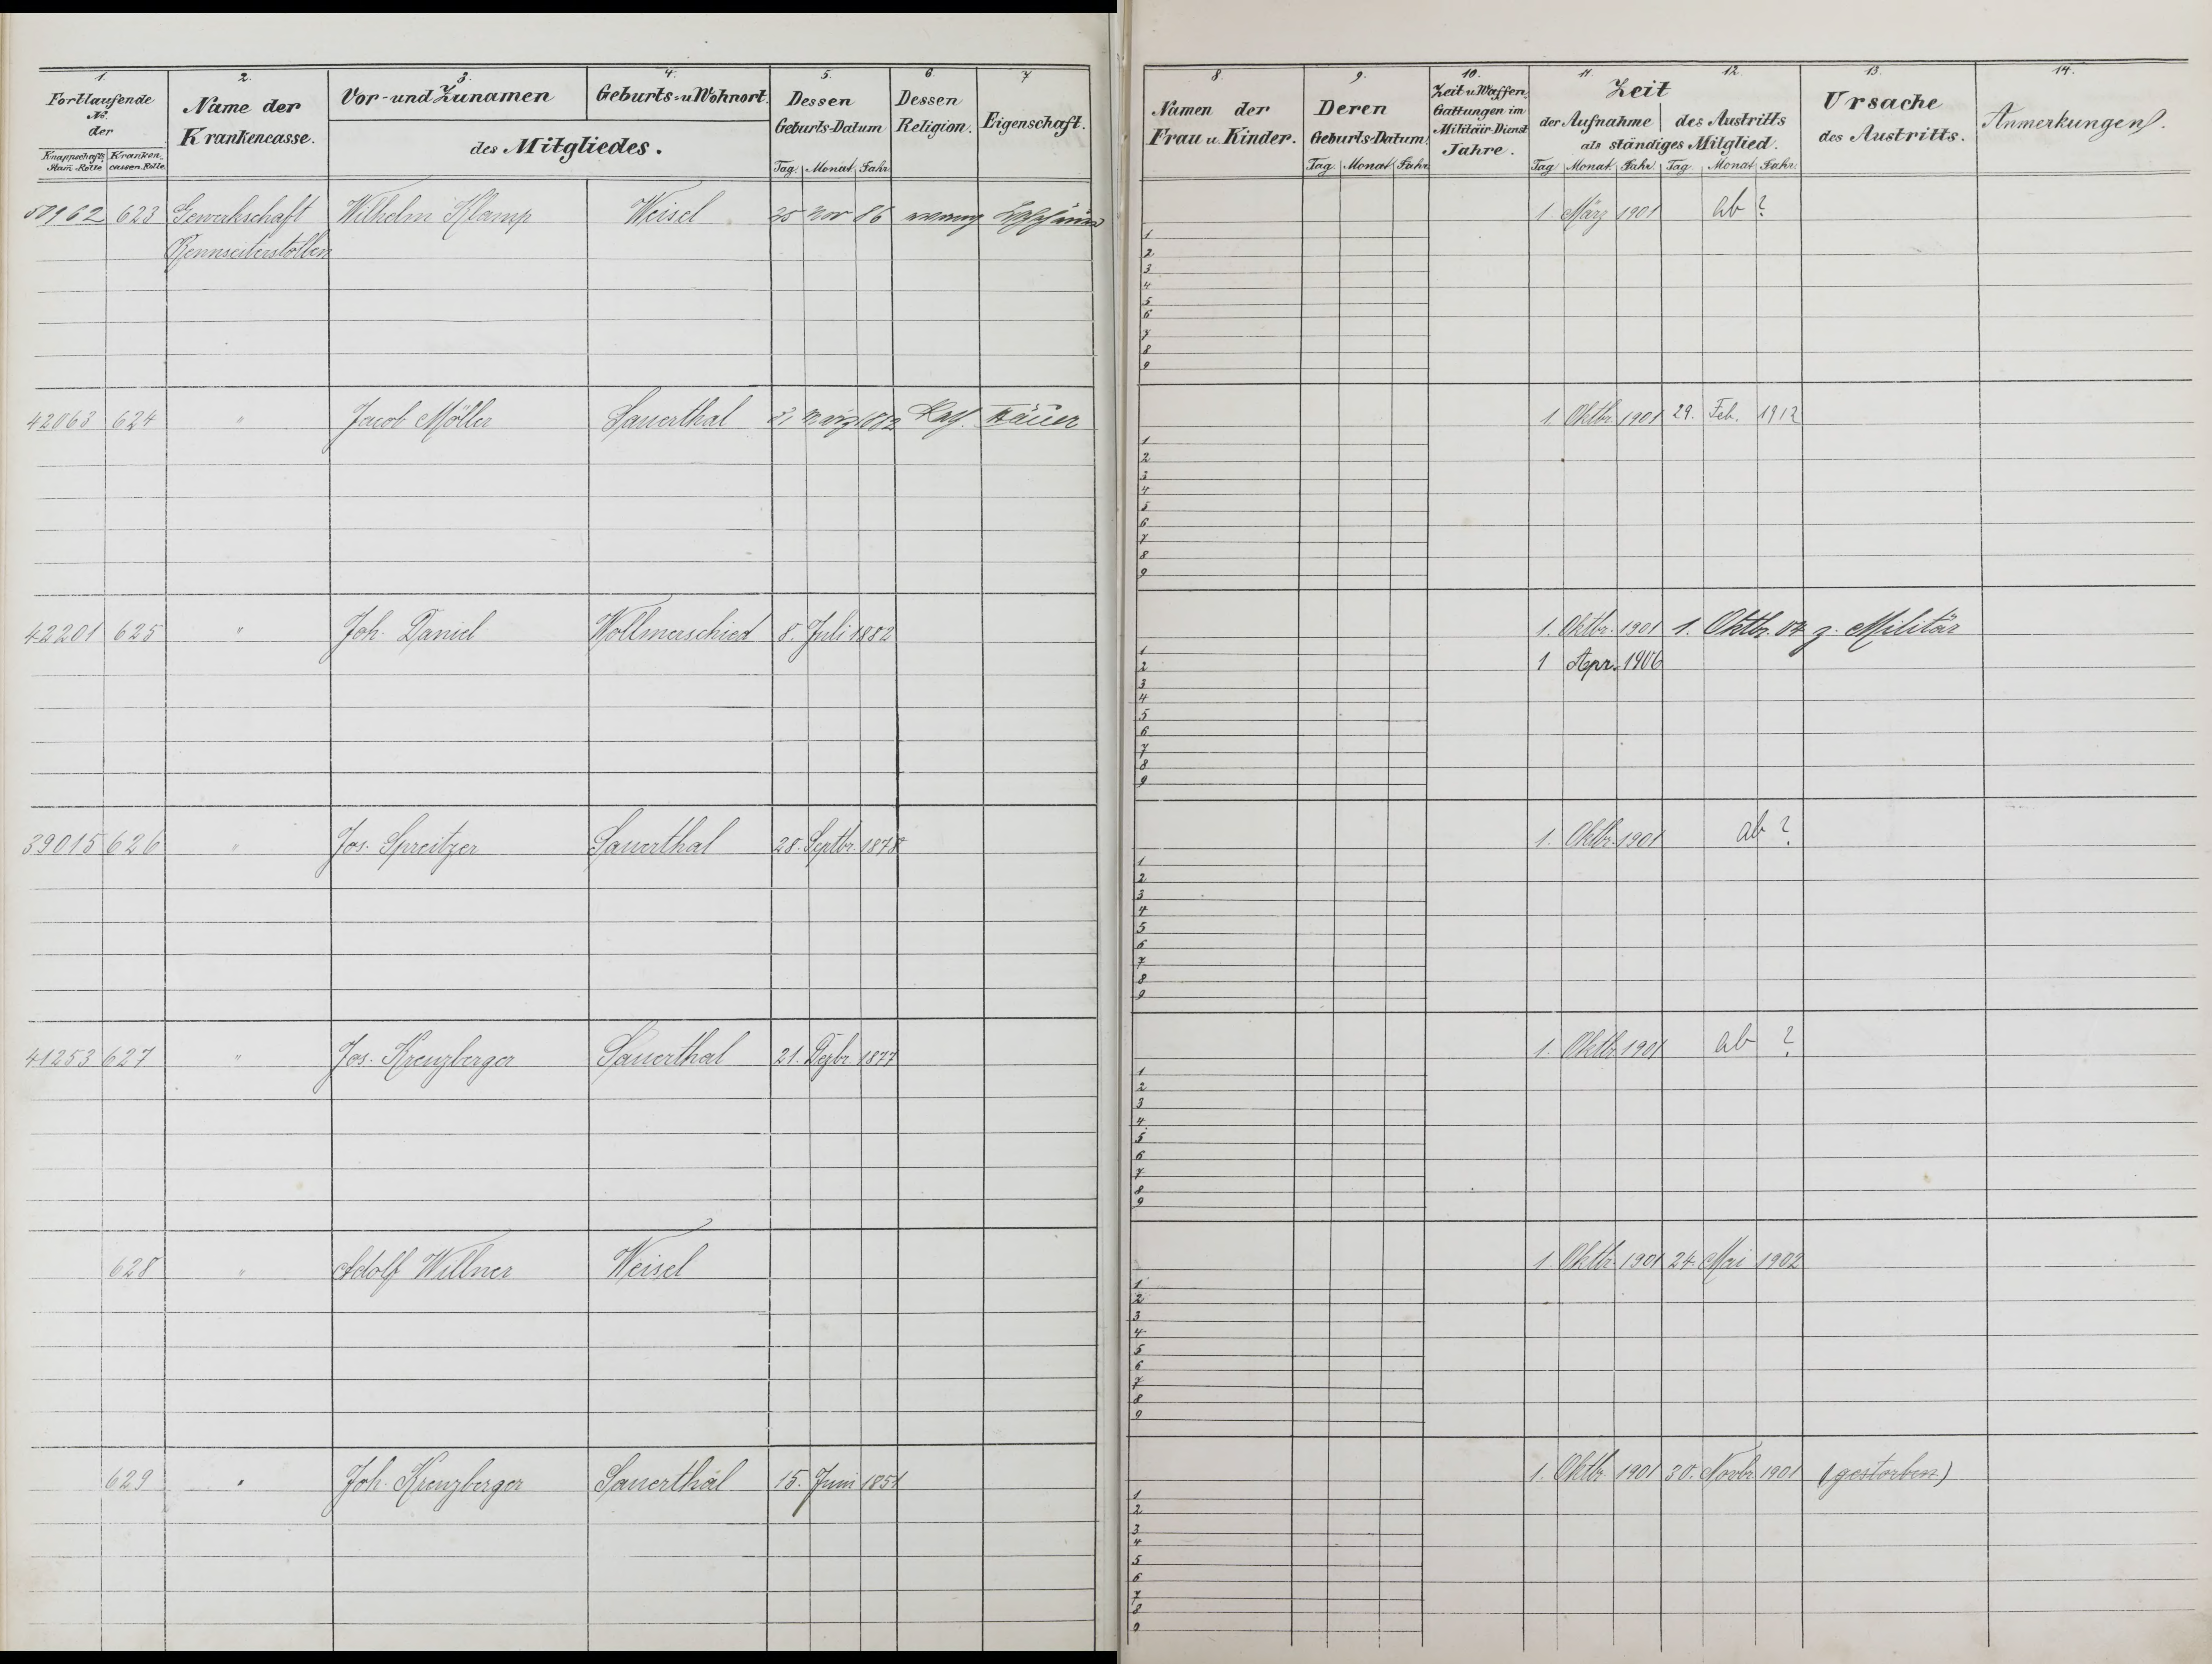 1. 2. 3. 4. 5. 6. 7
Fortlaufende No. der
Knappschafts Stam̄-Rolle Kranken cassen-Rolle
Name der Krankencasse.
Vor- und Zunamen
Geburts- u. Wohnort.
des Mitgliedes.
Dessen Geburts-Datum
Tag. Monat Jahr
Dessen Religion.
Eigenschaft.
50162 623 Gewerkschaft Wilhelm Klamp Weisel 25 Nov 86 evang
Rennseiterstollen
42063 624 " Jacob Möller Sauerthal März 1882 Kath. Häuer
42201 625 " Joh. Daniel Wollmerschied 8. Juli 1882
39015 626 " Jos. Spreitzer Sauerthal 28. Septbr. 1878
41253 627 " Jos. Kreuzberger Sauerthal 21. Dezbr. 1877
628 " Adolf Willner Weisel
629 " Joh. Kreuzberger Sauerthal 15. Juni 1851
8. 9. 10. 11. 12. 13. 14.
Namen der Frau u. Kinder.
Deren Geburts-Datum.
Tag. Monat Jahr
Zeit u. Waffen, Gattungen im Militair-Dienst Jahre.
Zeit
der Aufnahme des Austritts
als ständiges Mitglied.
Tag Monat Jahr. Tag. Monat Jahr.
Ursache des Austritts.
Anmerkungen.
1 März 1901 ab ?
1
2
3
4
5
6
7
8
9
1. Oktbr. 1901 29. Feb. 1912
1
2
3
4
5
6
7
8
9
1. Oktbr. 1901 1. Oktbr. 04 z. Militär
1
2 1 Apr. 1906
3
4
5
6
7
8
9
1. Oktbr. 1901 ab ?
1
2
3
4
5
6
7
8
9
1. Oktbr. 1901 ab ?
1
2
3
4
5
6
7
8
9
1. Oktbr. 1901 24. Mai 1902
1
2
3
4
5
6
7
8
9
1. Oktbr. 1901 30. Novbr. 1901 (gestorben)
1
2
3
4
5
6
7
8
9